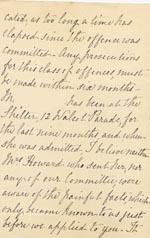 cated, as too long a time has
elapsed since the offence was
committed - Any prosecutions
for this class of offences must
be made within six months -
M has been at the
Shelter, 12 Walcot Parade, for
the last nine months and when
she was admitted. I believe neither
Mrs Howard who sent her, nor
any of our Committee were
aware of the painful facts which
only became known to us just
before we applied to you. It